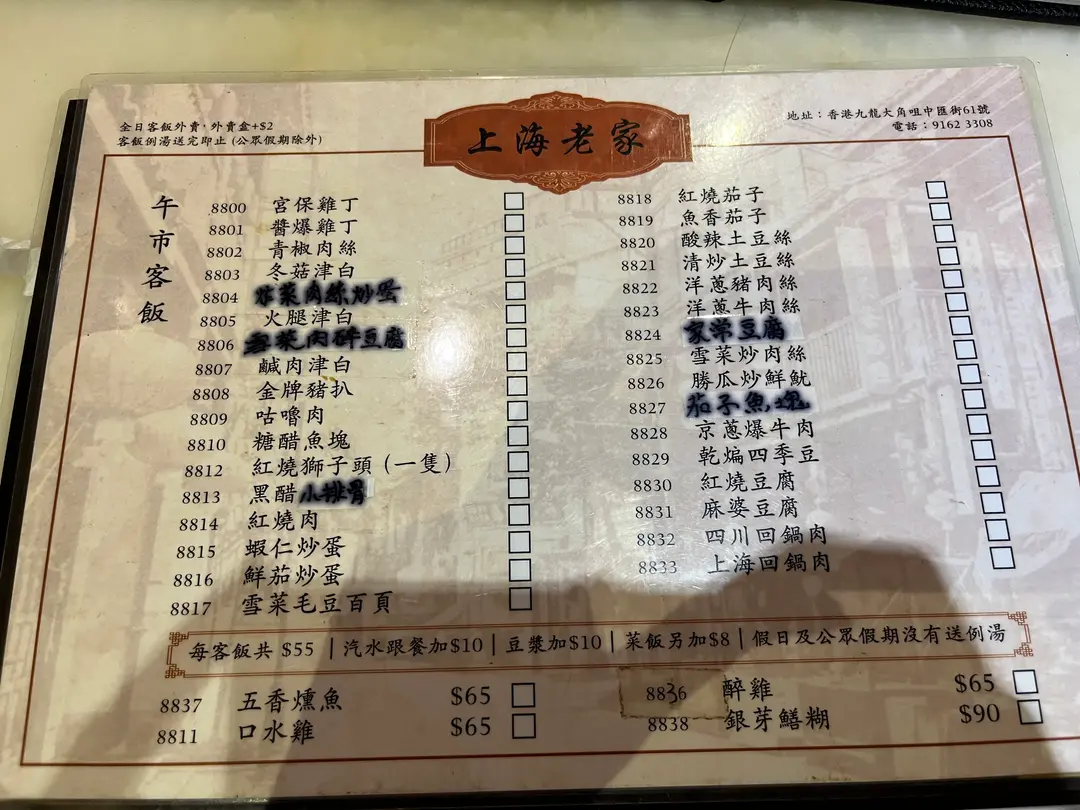 全日客飯外賣，外賣盒+$2
客飯例湯送完即止 (公眾假期除外)
上海老家
地址：香港九龍大角咀中匯街61號
電話：9162 3308
午市客飯
8800 宮保雞丁
8801 醬爆雞丁
8802 青椒肉絲
8803 冬菇津白
8804 榨菜肉絲炒蛋
8805 火腿津白
8806 雪菜肉碎豆腐
8807 鹹肉津白
8808 金牌豬扒
8809 咕嚕肉
8810 糖醋魚塊
8812 紅燒獅子頭 (一隻)
8813 黑醋小排骨
8814 紅燒肉
8815 蝦仁炒蛋
8816 鮮茄炒蛋
8817 雪菜毛豆百頁
8818 紅燒茄子
8819 魚香茄子
8820 酸辣土豆絲
8821 清炒土豆絲
8822 洋蔥豬肉絲
8823 洋蔥牛肉絲
8824 家常豆腐
8825 雪菜炒肉絲
8826 勝瓜炒鮮魷
8827 茄子魚塊
8828 京蔥爆牛肉
8829 乾煸四季豆
8830 紅燒豆腐
8831 麻婆豆腐
8832 四川回鍋肉
8833 上海回鍋肉
每客飯共 $55 | 汽水跟餐加$10 | 豆漿加$10 | 菜飯另加$8 | 假日及公眾假期沒有送例湯
8837 五香燻魚 $65
8811 口水雞 $65
8836 醉雞 $65
8838 銀芽鱔糊 $90